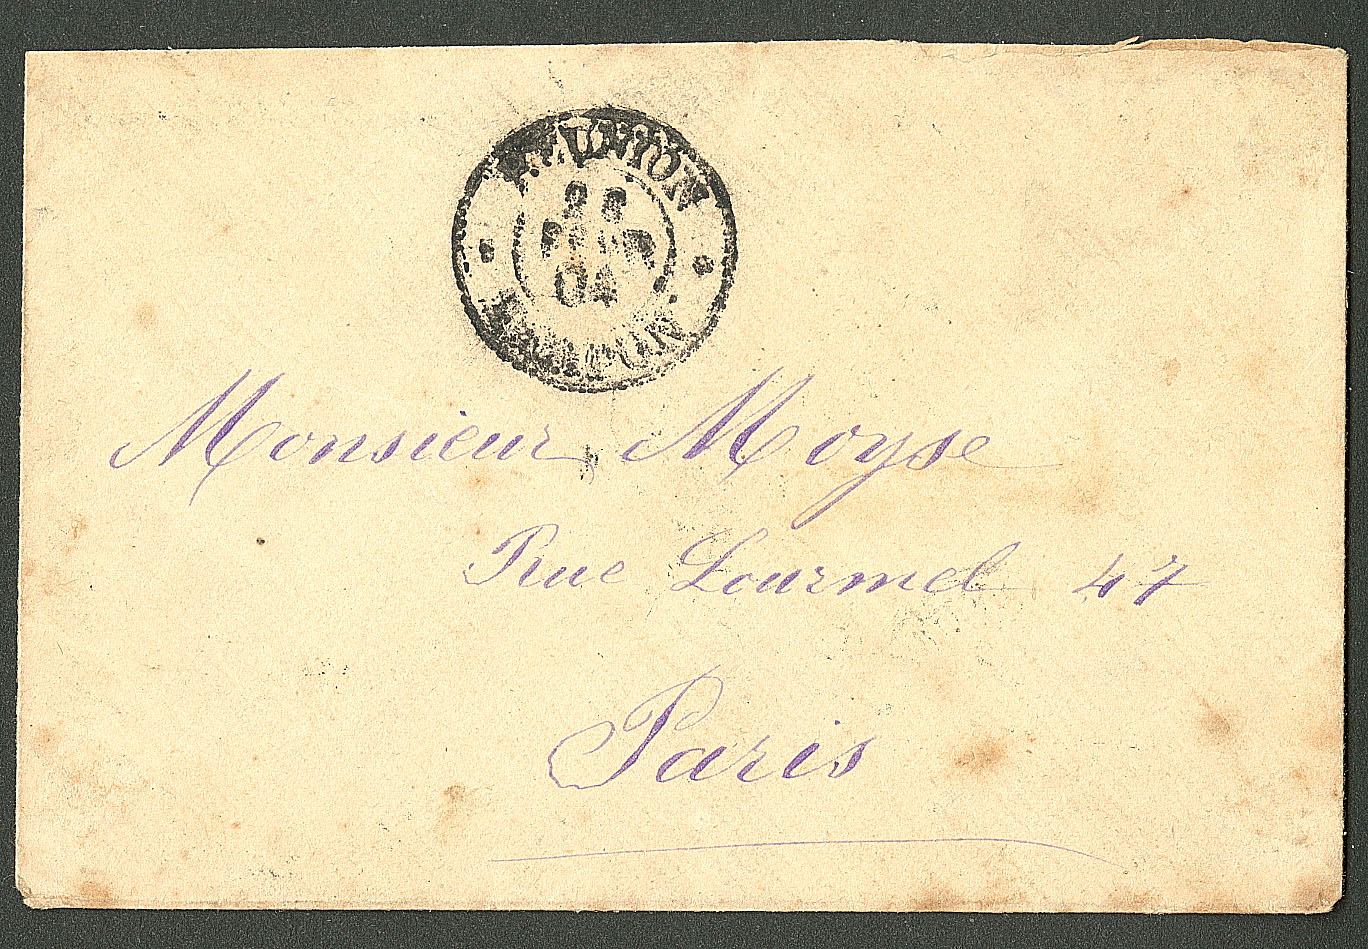 REUNION
04
Monsieur Moyse
Rue Lourmel 47
Paris